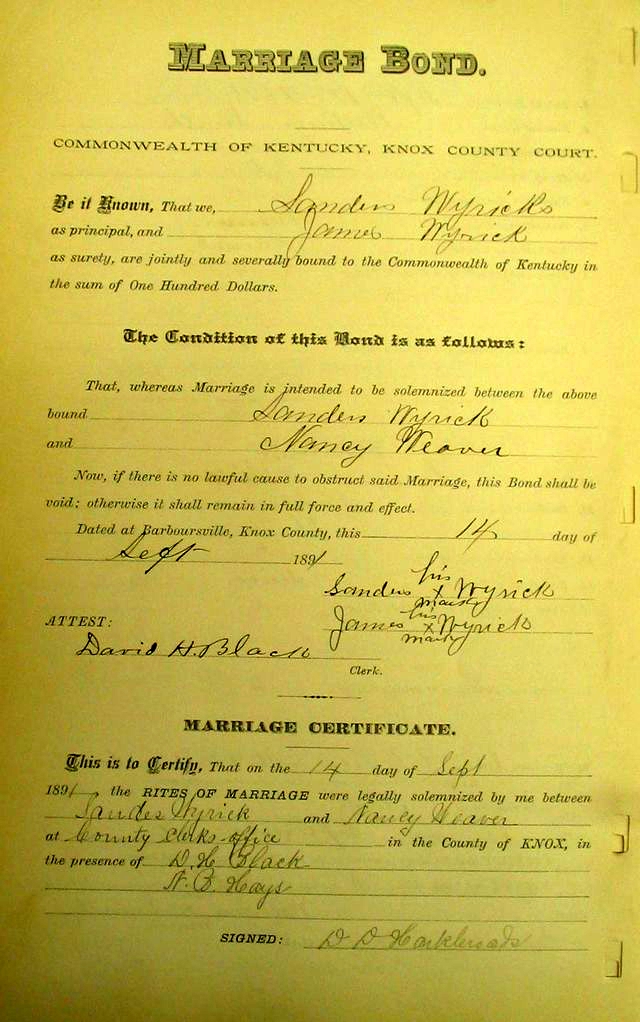 MARRIAGE BOND.
COMMONWEALTH OF KENTUCKY, KNOX COUNTY COURT.
Be it Known, That we, Sanders Wyricks
as principal, and James Wyrick
as surety, are jointly and severally bound to the Commonwealth of Kentucky in
the sum of One Hundred Dollars.
The Condition of this Bond is as follows:
That, whereas Marriage is intended to be solemnized between the above
bound Sanders Wyrick
and Nancy Weaver
Now, if there is no lawful cause to obstruct said Marriage, this Bond shall be
void; otherwise it shall remain in full force and effect.
Dated at Barboursville, Knox County, this 14 day of
Sept 1891
his
Sanders x Wyrick
mark
his
ATTEST: James x Wyrick
mark
David H. Black
Clerk.
MARRIAGE CERTIFICATE.
This is to Certify, That on the 14 day of Sept
1891 the RITES OF MARRIAGE were legally solemnized by me between
Sandes Wyrick and Nancy Weaver
at County Clerks office in the County of KNOX, in
the presence of D. H. Black
N. B. Hays
SIGNED: D D